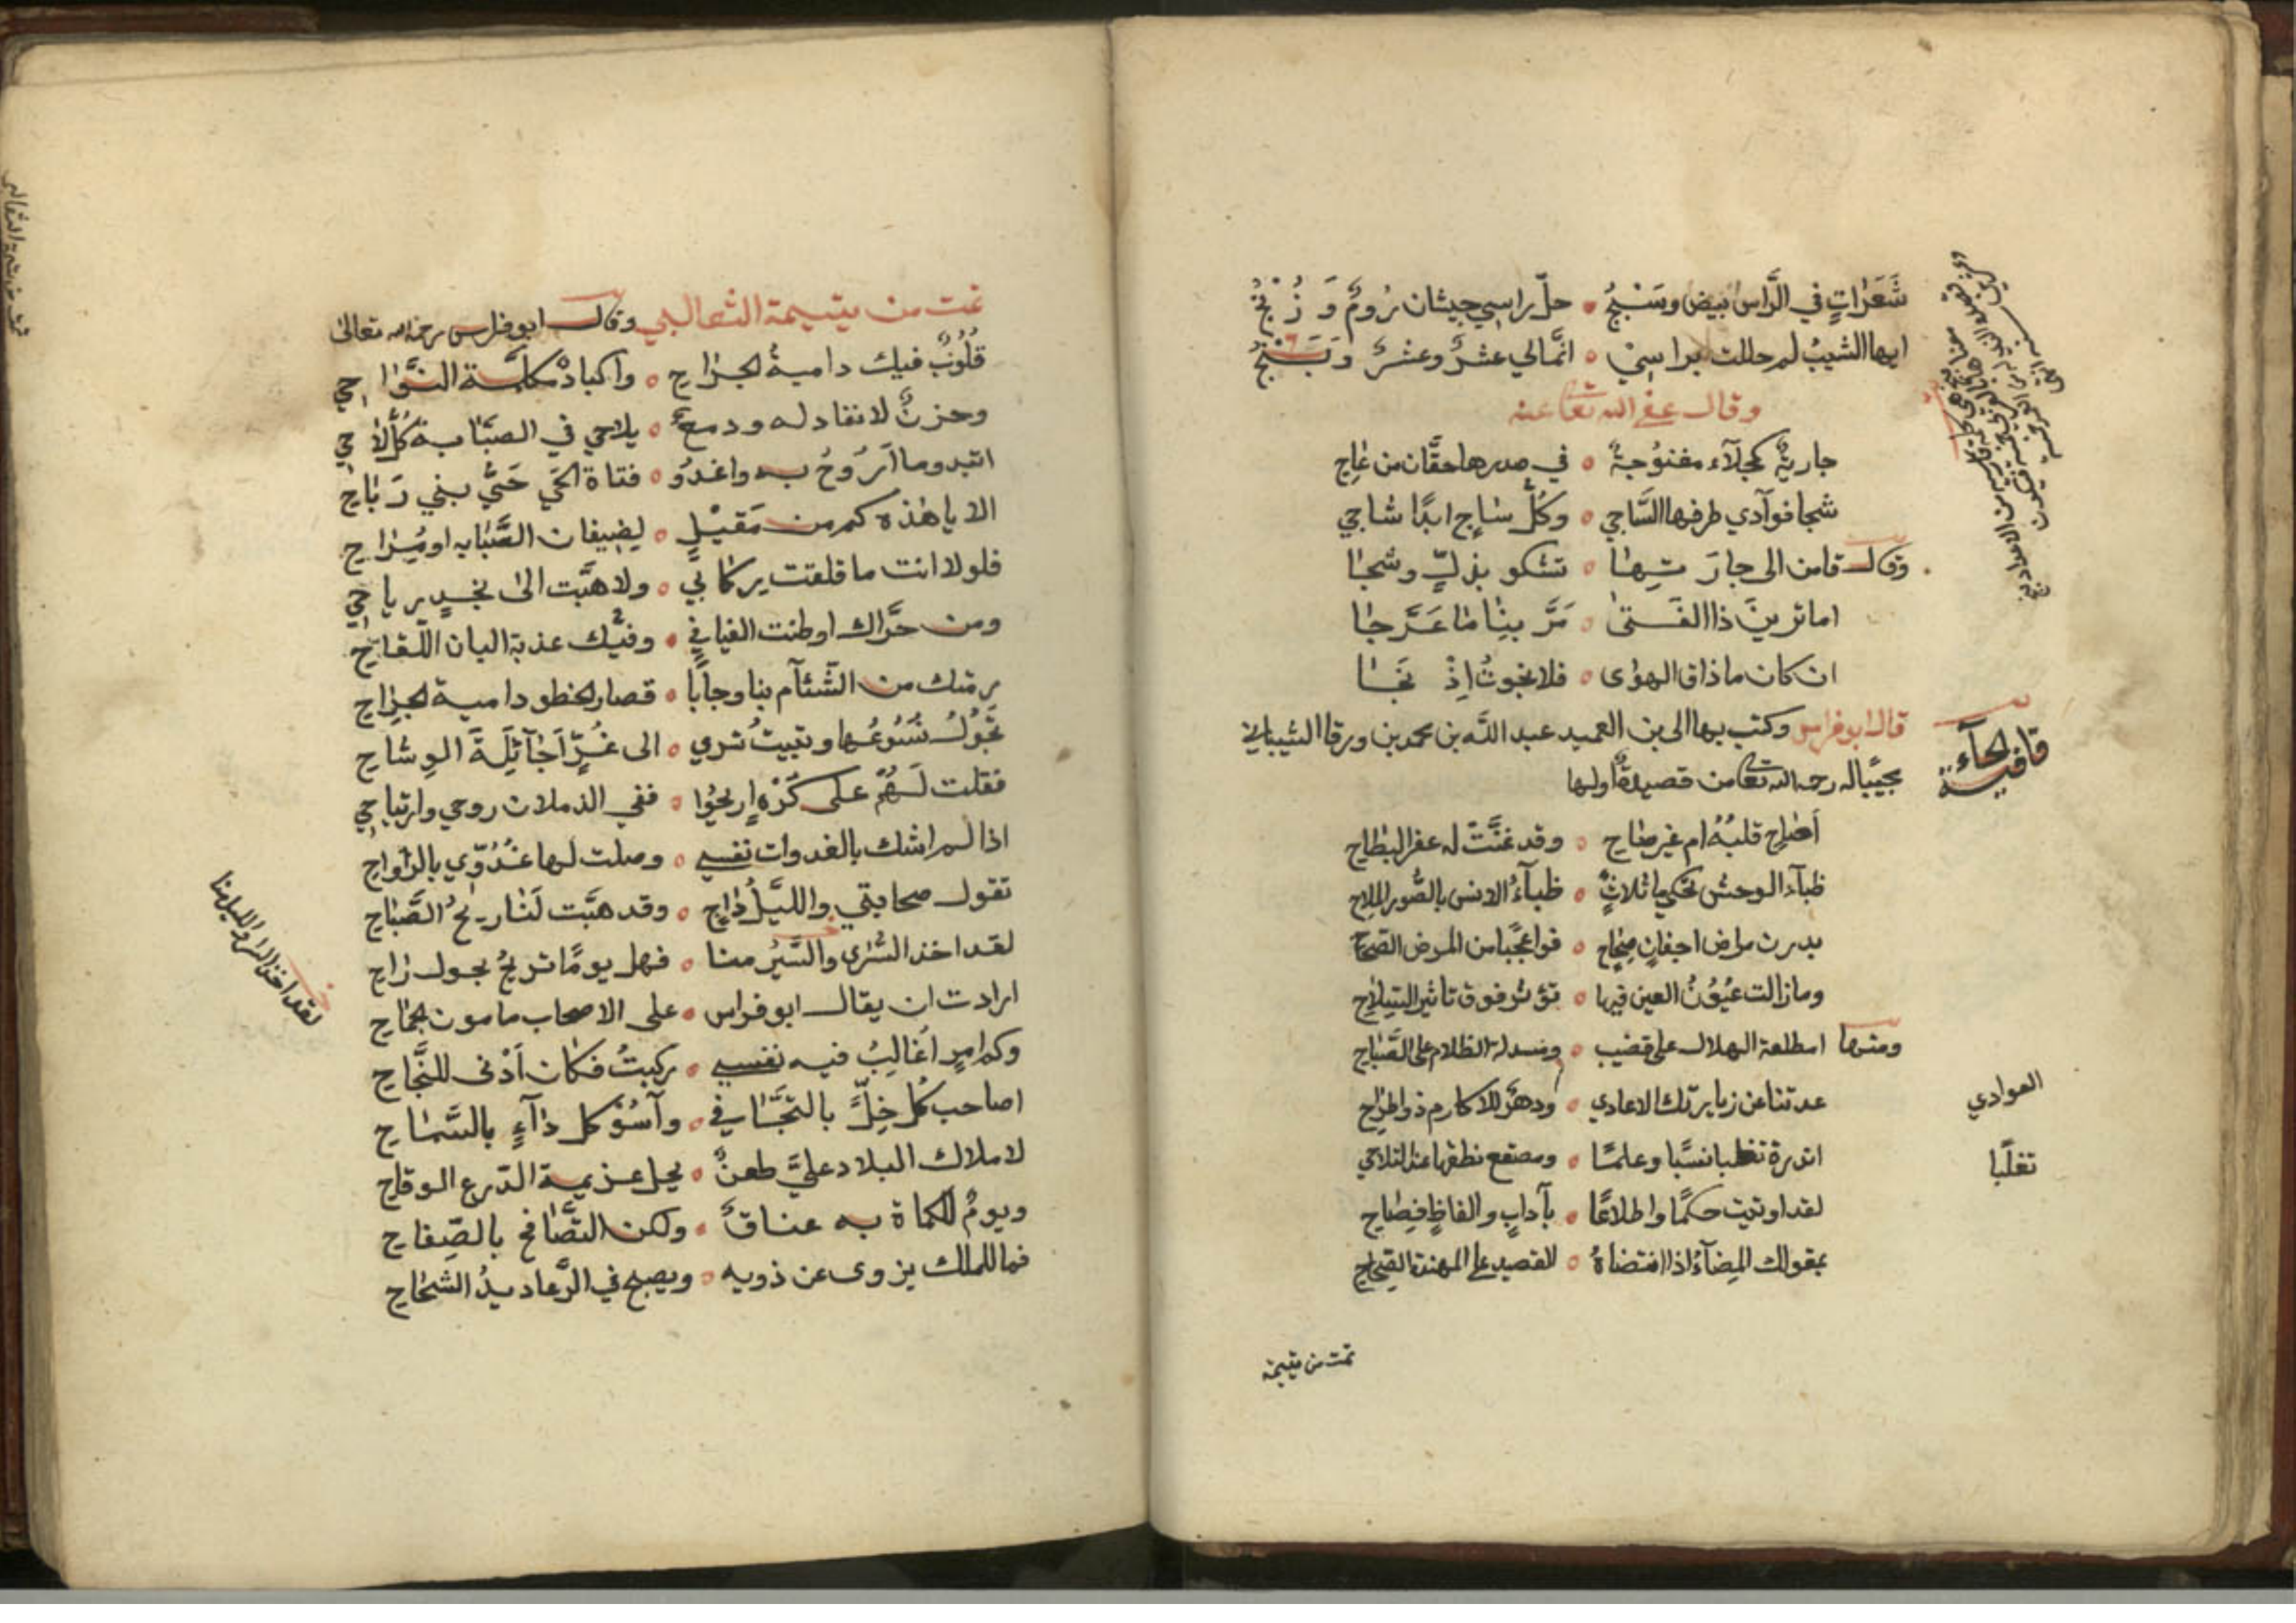 شَعَرَاتٍ في الرَّاس بيض وسَبْجُ ۰ حلّ راسي جيشان رُومٌ وَ زُنْجُ
ايها الشيبُ لم حللت براسيْ ۰ انَّما لي عشرٌ وعشرٌ وَ بَنْجُ
وقال عفى الله تعا عنه
جاريةٌ كحلآء مغنوُجةٌ ۰ في صدرها حقّان من عَاجِ
شجا فوآدي طرفها السَّاجي ۰ وكلُّ سَاجٍ ابدًا شاجي
وقال قامت الى جارَتِهَا ۰ تشكو بذلٍّ وشجَا
اما ترينَ ذا الفَتىٰ ۰ مَرَّ بِنَا مَا عَرَّجَا
ان كان ما ذاق الهوٰى ۰ فلا نجوتُ اِذْ نَجَا
قال ابو فراس وكتب بها الى بن العميد عبد الله بن محمد بن ورقا الشيباني
مجيبًا له رحمه الله تعا من قصيدةٍ اولها
قافية الحآء
أصَاحٍ قلبُهُ ام غير صَاحِ ۰ وقد عَنَّتْ له عفر البطاحِ
ظبآء الوحش تحكي ما ثلاثٍ ۰ ظبآءُ الانس بالصُّور الملاح
بدرت مراض اجفانٍ صِحَاحٍ ۰ فواعجبًا من المرض الصحاح
وما زالت عيُوُنُ العين فيها ۰ تؤثر فوق تاثير السِلاحِ
ومنها امطلعة الهلال على قضيب ۰ ومسدلة الظلام على الصَّبَاحِ
عدتنا عن زيارتك الاعادي ۰ ودهرٌ للاكارم ذو اطراحِ
العوادي
اندرة تغلب نسبًا وعلمًا ۰ ومصقع نطقها عند التلاحي
تغلبًا
لقد اوتيت حكمًا واطلاعًا ۰ بآدابٍ والفاظٍ فِصَاحِ
بمقولك المضآء اذا انتضاهُ ۰ للقصيد على المهندة الصِحاح
تمت من يتيمة
تمت من يتيمة الثعالبي وقال ابو فراس رحمه الله تعالىٰ
قلُوُبٌ فيك داميةُ الجرَاحِ ۰ واكبادٌ مكلَّمة النوَاحِي
وحزنٌ لا نفاد له ودمعٌ ۰ يلاحي في الصبَّابة كُلَّ لاحِي
اتبدو ما اَرُوحُ به واغدُو ۰ فتاة الحَي حَيُّ بني رَبَاحِ
الا يا هٰذه كم من مَقيْلٍ ۰ لضيفان الصَّبَابه او مُرَاحِ
فلولا انت ما قلقت ركابي ۰ ولا هبَّت الىٰ نجدٍ رياحِي
ومن جرَّاك اوطنت الفيافي ۰ وفيْك عذبة البان اللقَاحِ
رمتك من الشَّئآم بنا وجابا ۰ قصار الخطو دامية الجرَاحِ
تَجُوُلُ نُسُوُعُها وتبيتُ تسري ۰ الى غُرٍّآ جآئلَةِ الوِشاحِ
فقلت لَهُمْ على كَرْهٍ اريحُوا ۰ ففي الذملان روحي وارتياحِي
اذا لم اشك بالغدوات نفسي ۰ وصلت لها غُدُوّي بالرَّواحِ
تقول صحابتي والليَّلُ دَاجٍ ۰ وقد هبَّت لنَا ريحُ الصَّبَاحِ
لقد اخذ السُّرٰى والسَّيْرُ منا ۰ فهل يومًا تريحُ بحول رَاحِ
ارادت ان يقال ابو فراس ۰ على الاصحاب مامون الجمَاحِ
وكم امرٍ أغالبُ فيه نفسي ۰ ركبتُ فكان اَدْنى للنَّجَاحِ
اصاحب كُل خِلٍّ بالتجَّافي ۰ وآسُوْ كل دَآءٍ بالسَّمَاحِ
لاملاك البلاد عليَّ طعنٌ ۰ يحل عزيمة الدّرع الوقاحِ
ويومٌ للكماة به عناقٌ ۰ ولكن التصَّافحُ بالصّفِاحِ
فما للملك يزوى عن ذويه ۰ ويصبح في الرَّعاديدُ الشحَاحِ